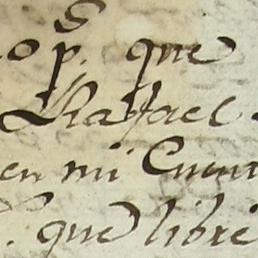 op. que
Rafael
en mi Cuent
que libre